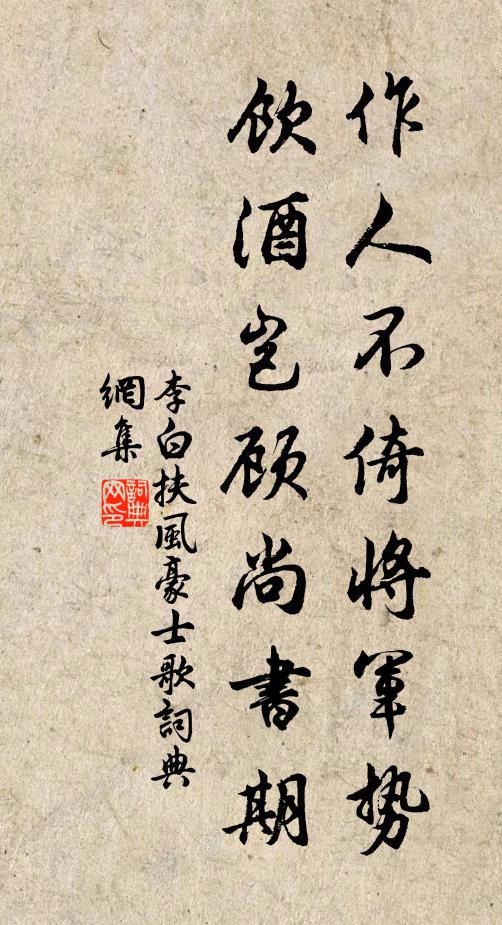 作人不倚將軍勢
飲酒岂顾尚書期
李白扶風豪士歌詞典
網集
詞典
网印